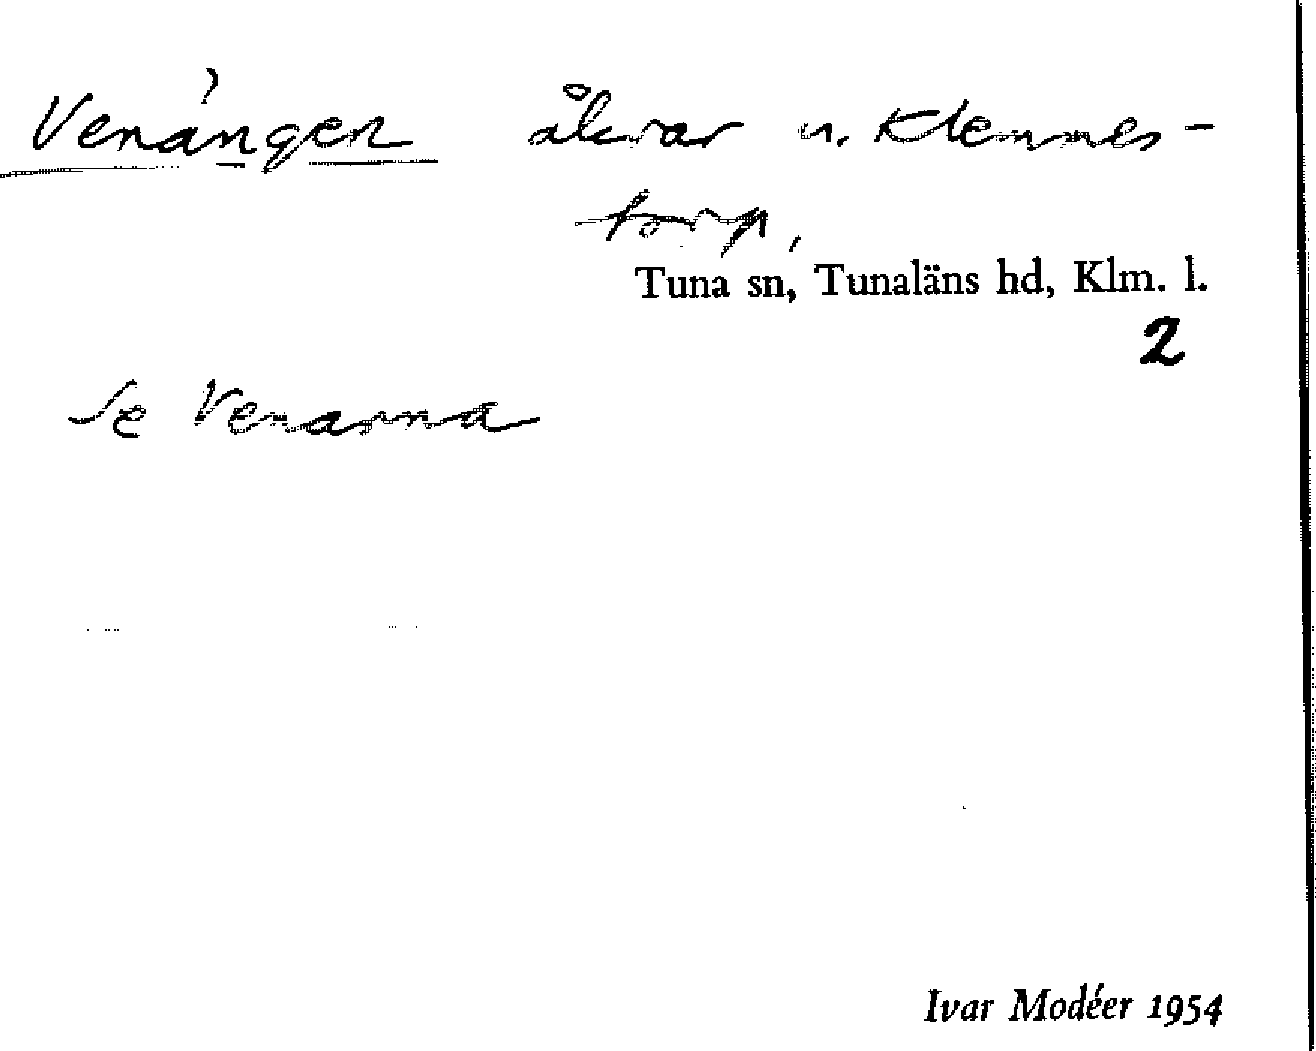 Venängen åkrar u. Klemmes-
torp,
Tuna sn, Tunaläns hd, Klm. l.
2
Se Venarna
Ivar Modéer 1954